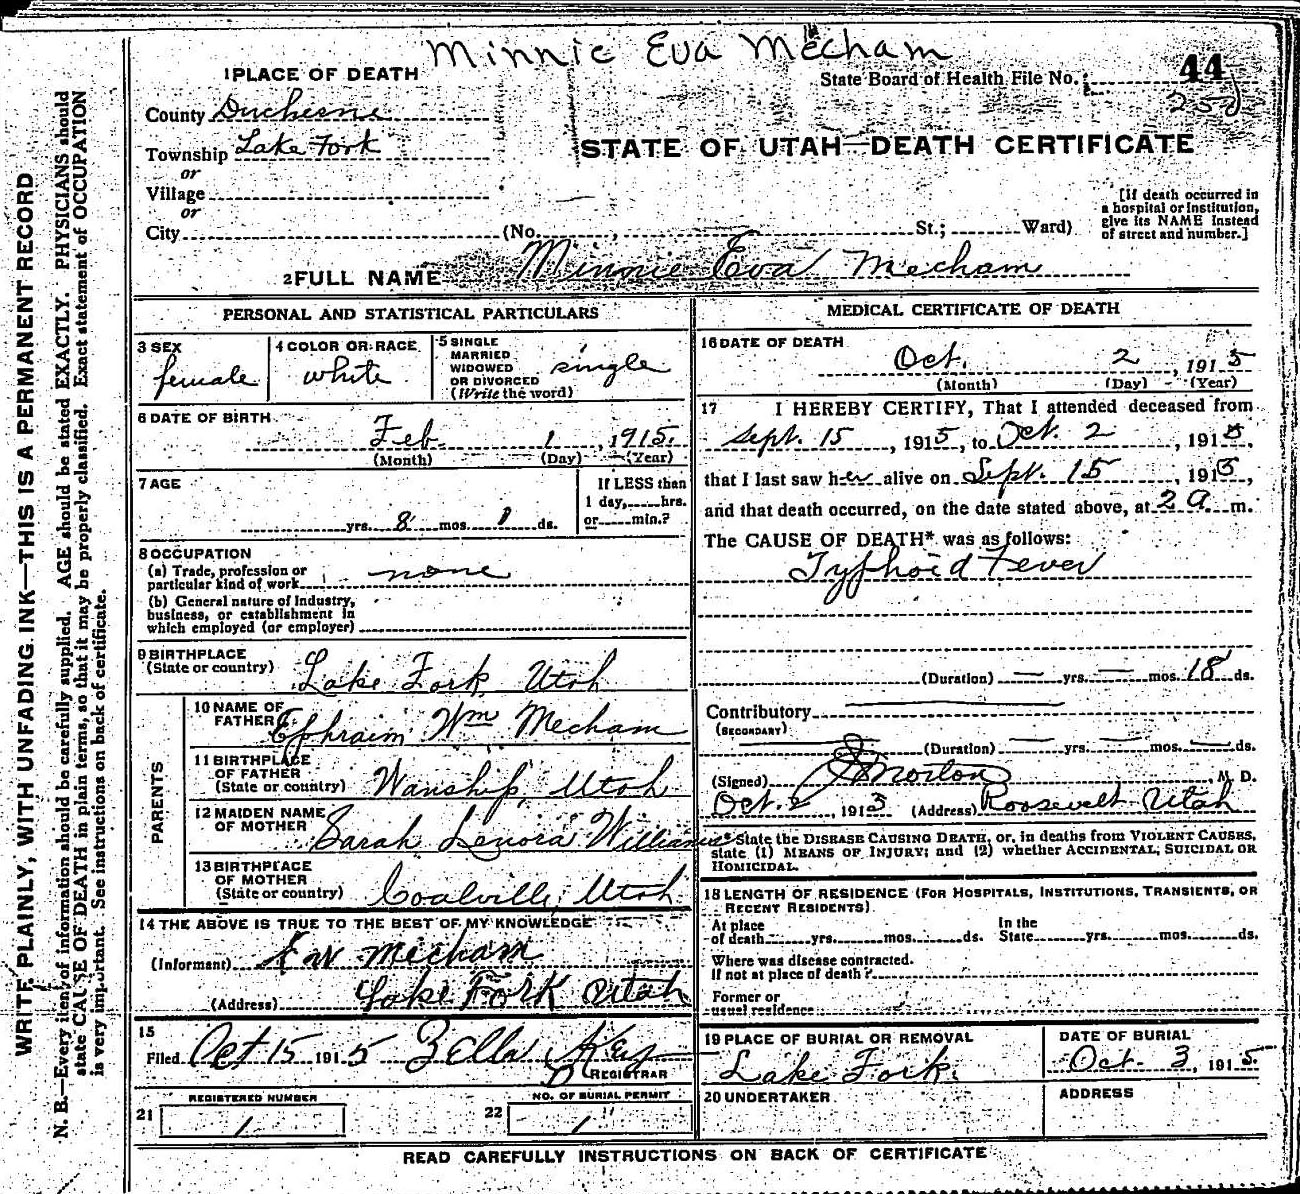 Minnie Eva Mecham
1 PLACE OF DEATH
State Board of Health File No. 44
County Duchesne
Township Lake Fork
or
Village
or
City (No. , St.; Ward)
STATE OF UTAH—DEATH CERTIFICATE
[If death occurred in
a hospital or institution,
give its NAME instead
of street and number.]
2 FULL NAME Minnie Eva Mecham
PERSONAL AND STATISTICAL PARTICULARS
3 SEX
female
4 COLOR OR RACE
white
5 SINGLE
MARRIED
WIDOWED
OR DIVORCED
(Write the word)
single
6 DATE OF BIRTH
Feb. 1, 1915.
(Month) (Day) (Year)
7 AGE
yrs. 8 mos. 1 ds.
If LESS than
1 day, hrs.
or min.?
8 OCCUPATION
(a) Trade, profession or
particular kind of work none
(b) General nature of Industry,
business, or establishment in
which employed (or employer)
9 BIRTHPLACE
(State or country) Lake Fork, Utah
PARENTS
10 NAME OF
FATHER Ephraim Wm Mecham
11 BIRTHPLACE
OF FATHER
(State or country) Wanship, Utah
12 MAIDEN NAME
OF MOTHER Sarah Lenora Williams
13 BIRTHPLACE
OF MOTHER
(State or country) Coalville, Utah
14 THE ABOVE IS TRUE TO THE BEST OF MY KNOWLEDGE
(Informant) E W Mecham
(Address) Lake Fork Utah
15
Filed Oct 15 1915 Zella
REGISTRAR
21 REGISTERED NUMBER
1
22 NO. OF BURIAL PERMIT
1
MEDICAL CERTIFICATE OF DEATH
16 DATE OF DEATH
Oct. 2, 1915
(Month) (Day) (Year)
17 I HEREBY CERTIFY, That I attended deceased from
Sept. 15, 1915, to Oct. 2, 1915,
that I last saw her alive on Sept. 15, 1915,
and that death occurred, on the date stated above, at 2 a. m.
The CAUSE OF DEATH* was as follows:
Typhoid Fever
(Duration) — yrs. — mos. 18 ds.
Contributory —
(SECONDARY)
(Duration) — yrs. — mos. — ds.
(Signed) Morton, M. D.
Oct. 2, 191 (Address) Roosevelt Utah
*State the DISEASE CAUSING DEATH, or, in deaths from VIOLENT CAUSES,
state (1) MEANS OF INJURY; and (2) whether ACCIDENTAL, SUICIDAL OR
HOMICIDAL.
18 LENGTH OF RESIDENCE (FOR HOSPITALS, INSTITUTIONS, TRANSIENTS, OR
RECENT RESIDENTS)
At place
of death yrs. mos. ds.
In the
State yrs. mos. ds.
Where was disease contracted.
If not at place of death?
Former or
usual residence
19 PLACE OF BURIAL OR REMOVAL
Lake Fork.
DATE OF BURIAL
Oct. 3, 1915
20 UNDERTAKER
ADDRESS
READ CAREFULLY INSTRUCTIONS ON BACK OF CERTIFICATE
WRITE PLAINLY, WITH UNFADING INK—THIS IS A PERMANENT RECORD
N. B.—Every item of information should be carefully supplied. AGE should be stated EXACTLY. PHYSICIANS should
state CAUSE OF DEATH in plain terms, so that it may be properly classified. Exact statement of OCCUPATION
is very important. See instructions on back of certificate.